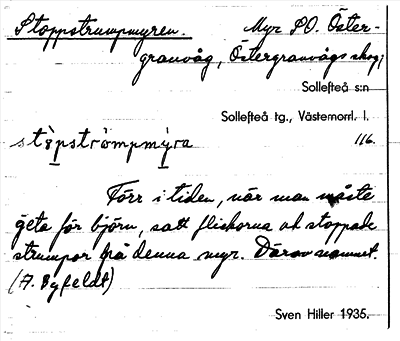 Stoppstrumpmyren. Myr SO. Öster-
granvåg, Östergranvågs skog,
Sollefteå s:n
Sollefteå tg., Västernorrl. l.
116.
stɵ̀pstrɵ̀mpmy̱ra
Förr i tiden, när man måste
geta för björn, satt flickorna och stoppade
strumpor på denna myr. Därav namnet.
(A. Byfeldt)
Sven Hiller 1935.